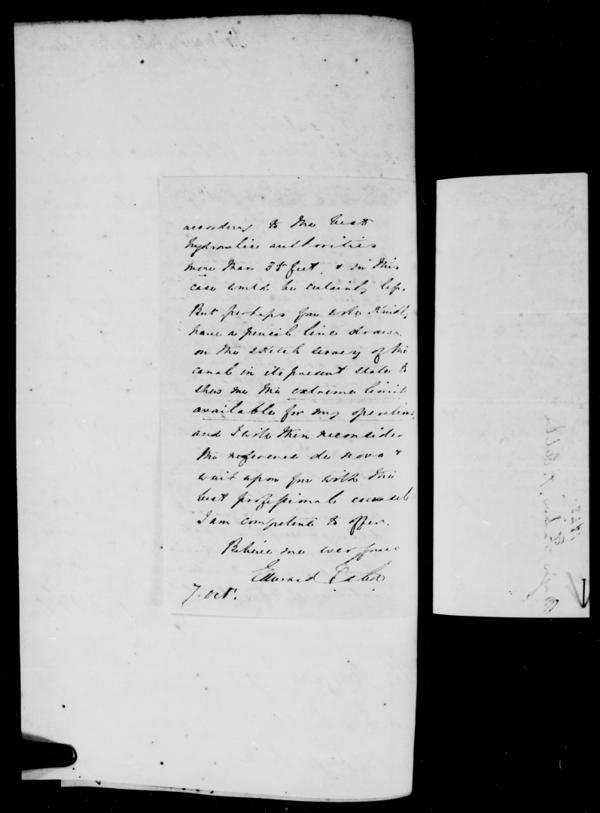 according to the best
hydraulic authorities
more than 3½ feet, & in this
case would be certainly less.
But perhaps you will kindly
have a pencil line drawn
on the sketch survey of the
canal in its present state to
shew me the extreme limit
available for my operations
and I will then reconsider
the reference de novo &
wait upon you with the
best professional counsel
I am competent to offer.
Believe me ever yours
Edward
7. Oct.